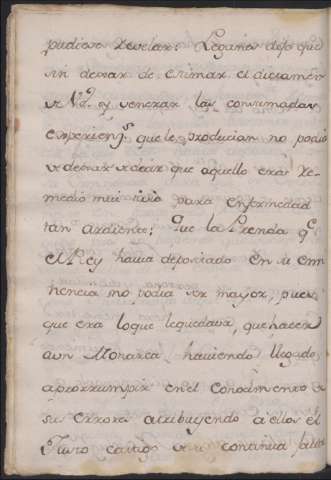 pudiese revelar: Legañes dijo que
sin dexar de estimar el dictamen
de N.ª y venerar las consumadas
experien.s que le producian no podia
dexar de decir que aquello era re-
medio mui tivio para enfermedad
tan ardiente; Que la Prenda q.e
el Rey havia depositado en su emi
nencia no podia ser mayor, pues
que era loque lequedava, que hacer
aun Monarca haviendo llegado
aprorrumpir en el Conocimento de
sus errores atribuyendo à ellos el
Justo castigo de su continua